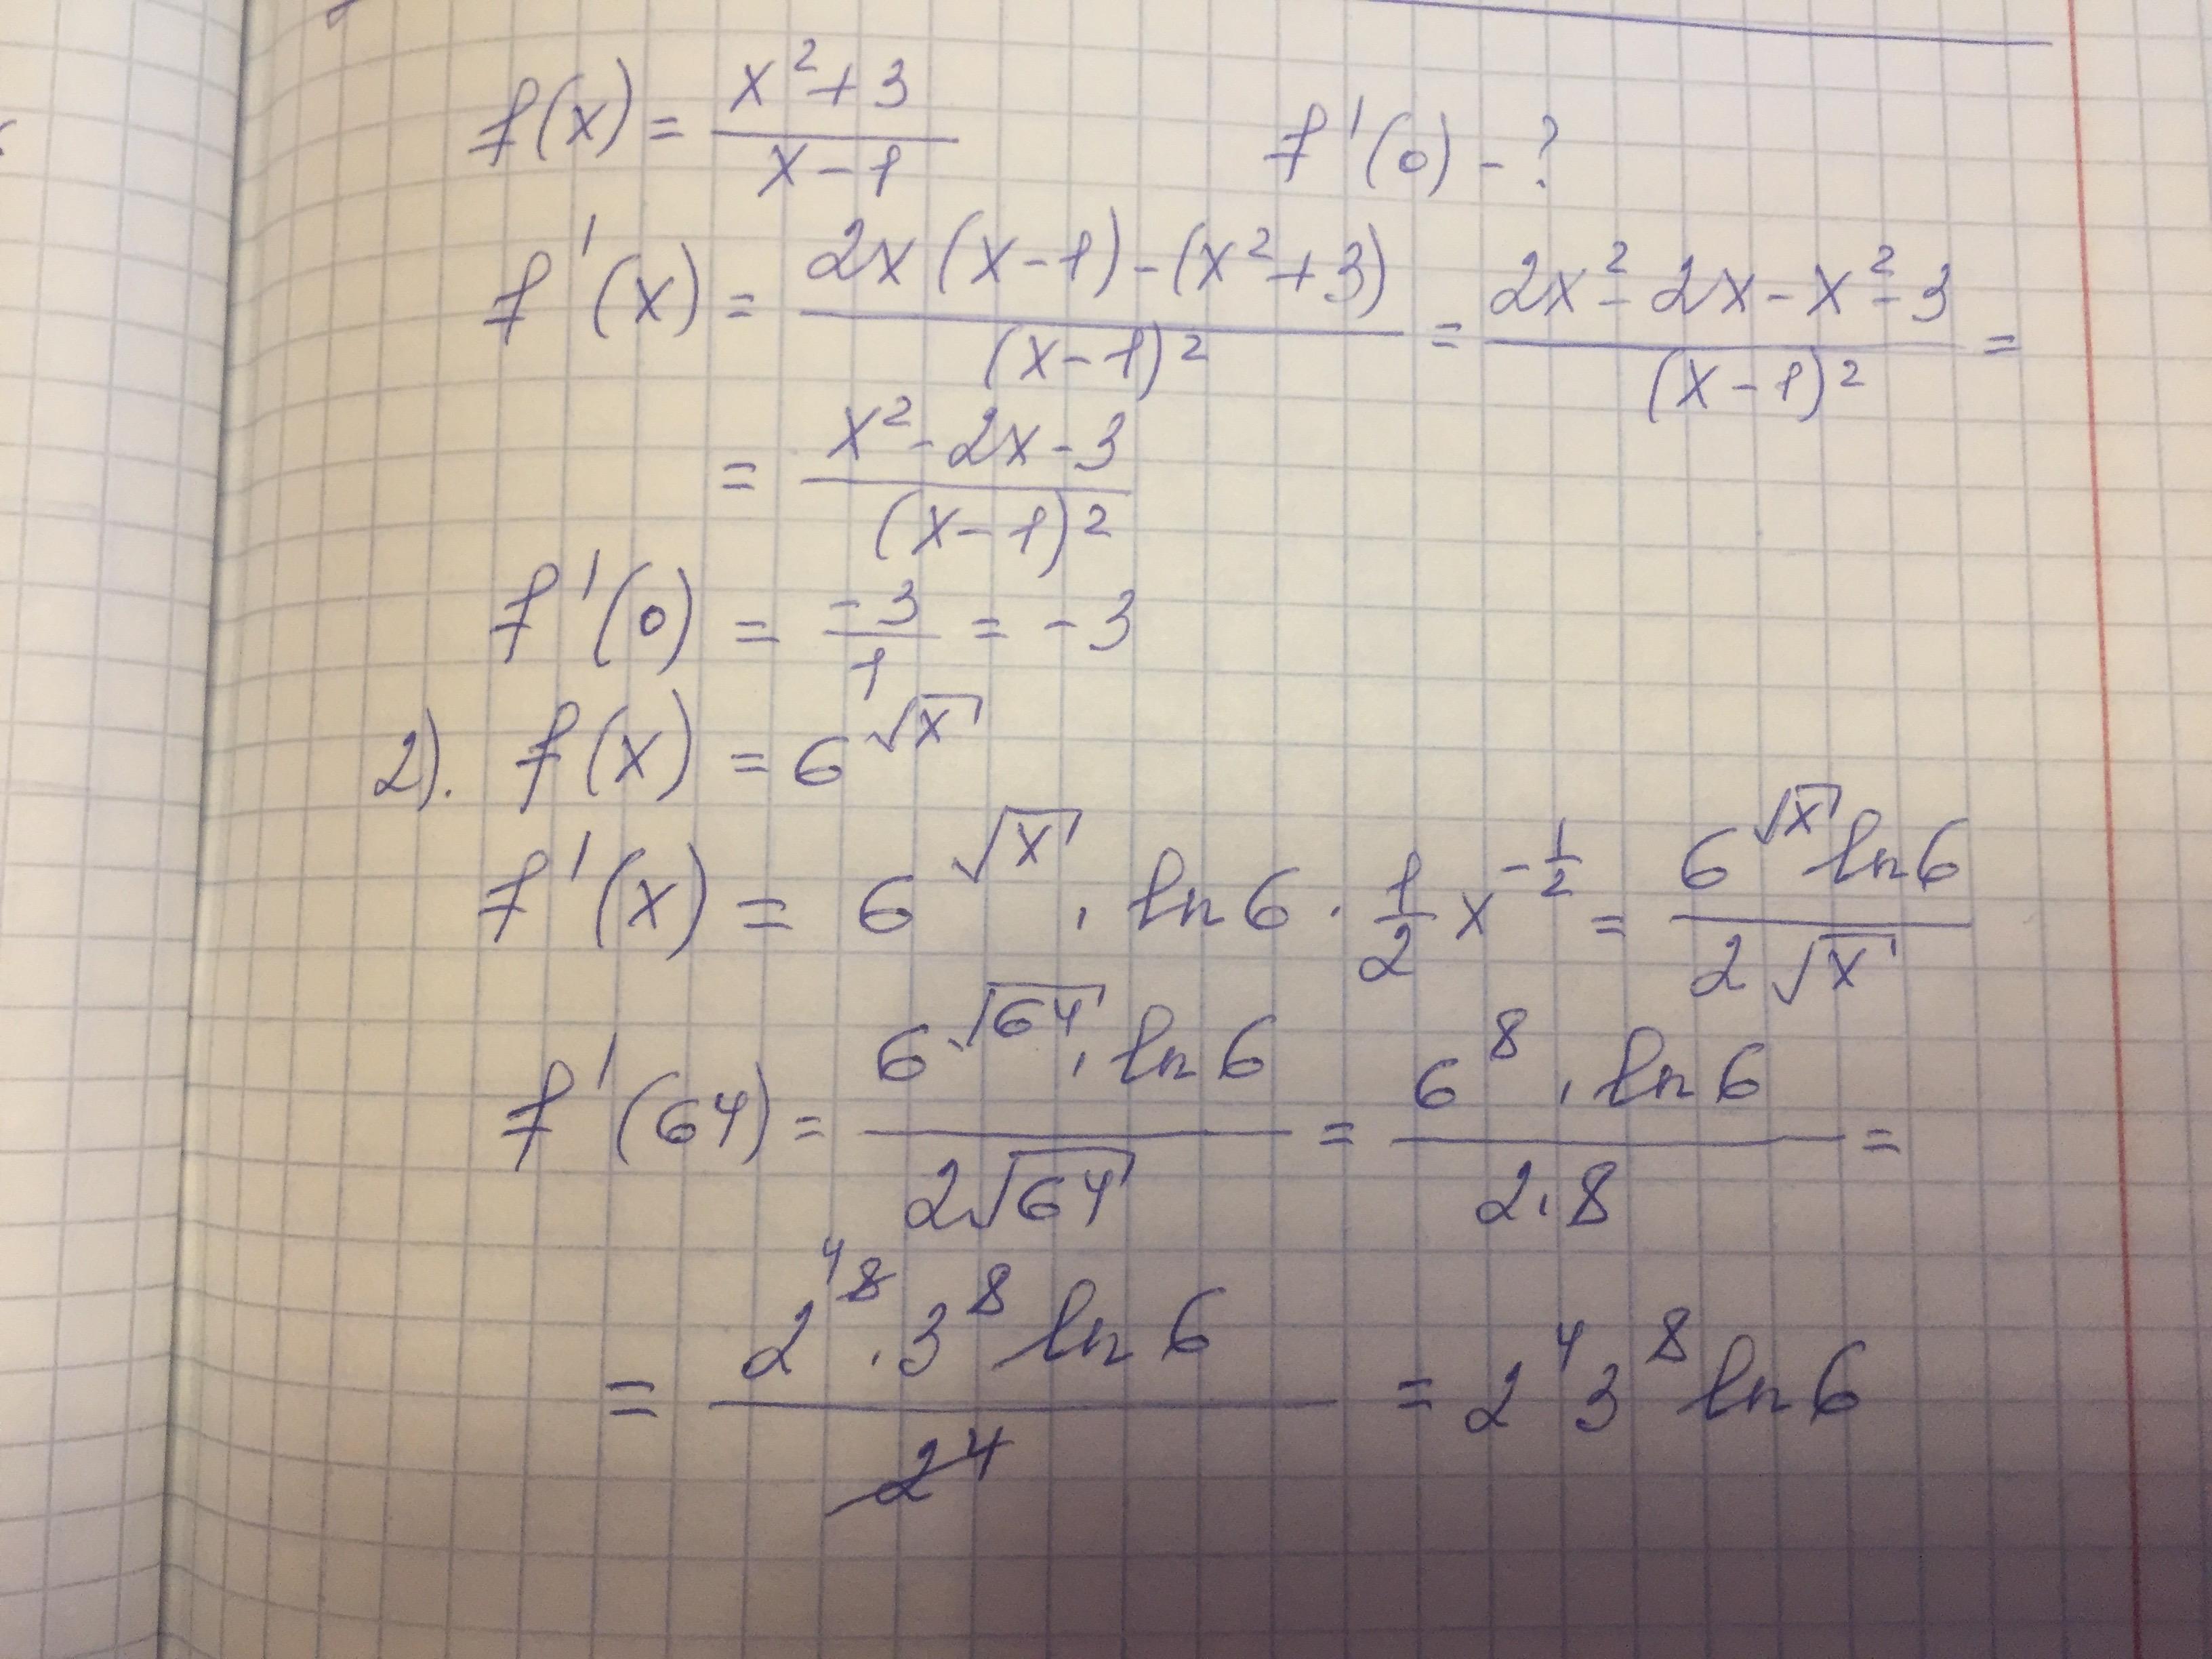 f(x) = (x² + 3)/(x - 1)   f'(0) - ?
f'(x) = (2x(x-1) - (x²+3))/((x-1)²) = (2x² - 2x - x² - 3)/((x-1)²) =
= (x² - 2x - 3)/((x-1)²)
f'(0) = (-3)/1 = -3
2). f(x) = 6^(√x)
f'(x) = 6^(√x) · ln6 · (1/2)x^(-1/2) = (6^(√x) ln6)/(2√x)
f'(64) = (6^(√64) · ln6)/(2√64) = (6⁸ · ln6)/(2·8) =
= (2^(4 8) · 3⁸ ln6)/(2⁴) = 2⁴ 3⁸ ln6